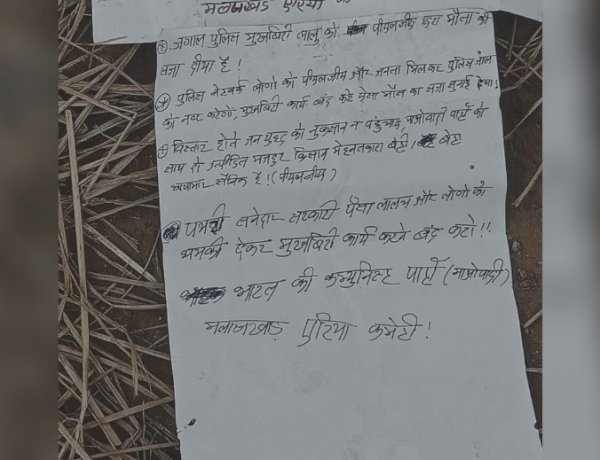 मलाजखंड एरिया
जंगाल पुलिस मुखबिरी लालु को पीएलजीए द्वारा मौत की
सजा दीया है!
पुलिस नेटवर्क लोगो को पीएलजीए और जनता मिलकर पुलिस जाल
को नष्ट करेगी, मुखबिरी कार्य बंद करे मेषा मौत का सजा सुनाई देगा!
विस्तार होते जन युद्ध को नुकसान न पंहुचाए, माओवादी पार्टी की
साथ दो उत्पीड़ित मजदुर किसान मेहनतकश बेटी बेटा
सैनिक है! (पीएलजीए)
सरकारी पैसा लालच और लोगो को
धमकी देकर मुखबिरी कार्य करने बंद करो!!
भारत की कम्युनिस्ट पार्टी (माओवादी)
मलाजखण्ड एरिया कमेटी!